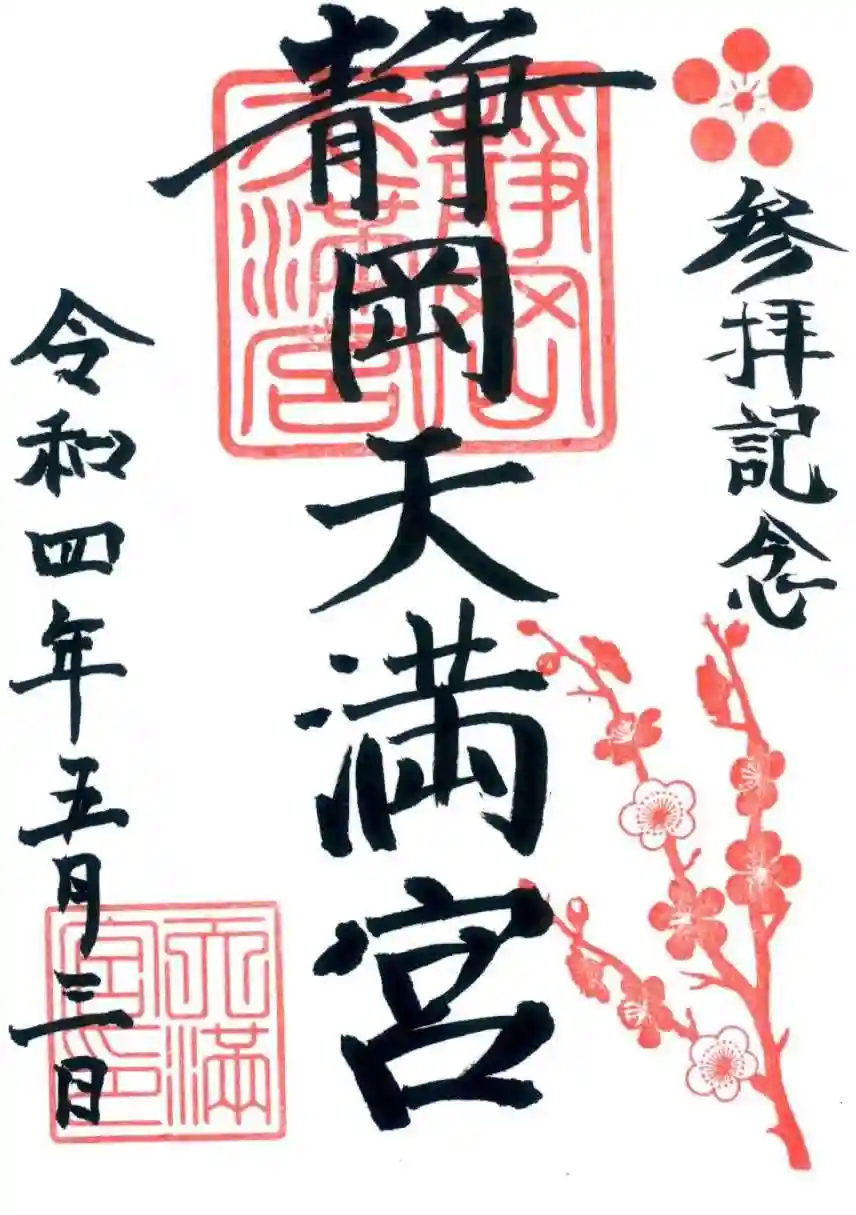 参拝記念
静岡天満宮
令和四年五月三日
静岡
天満宮
天満
宮印